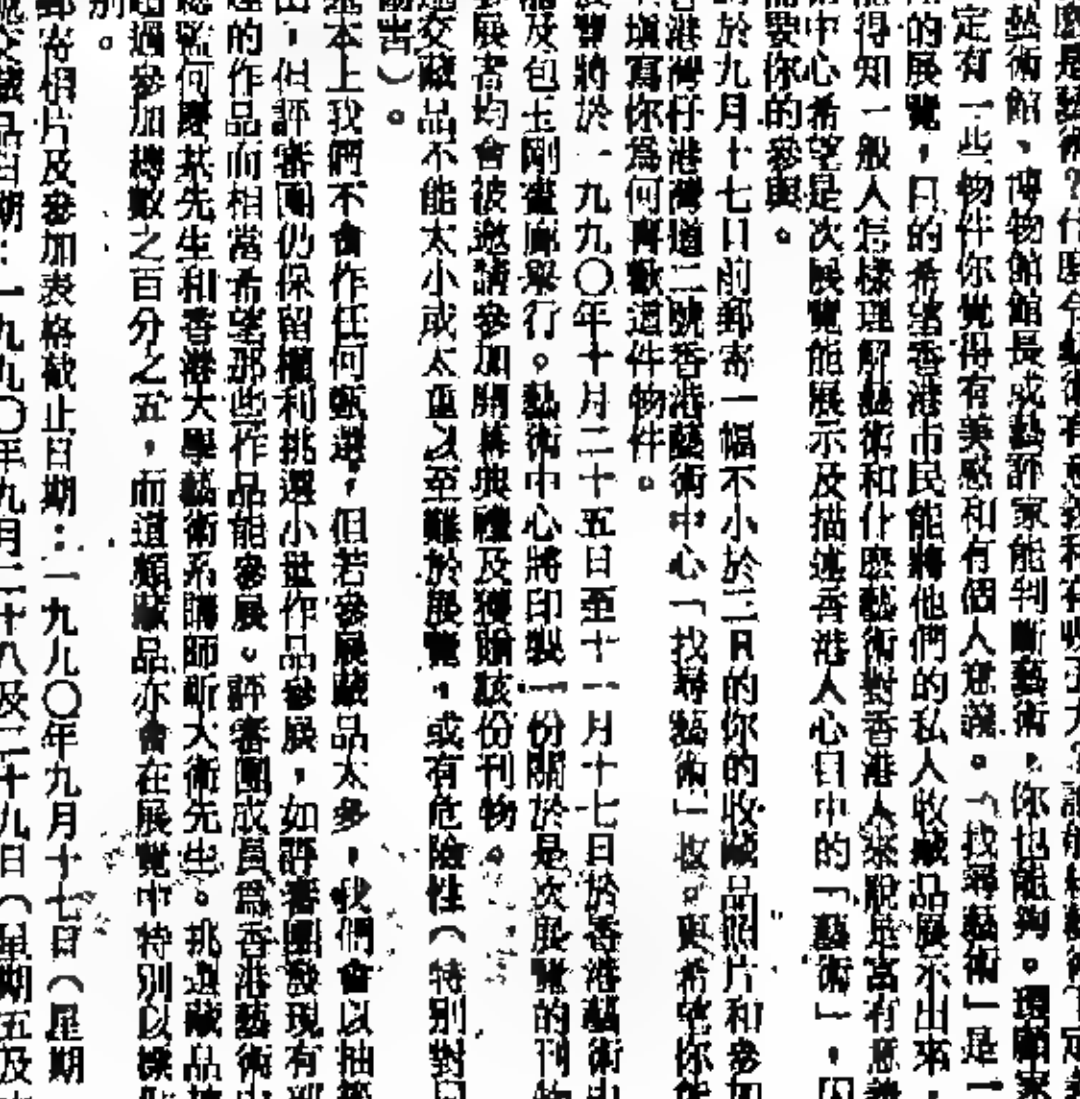 藝術館、博物館館長或藝評家能判斷藝術，你也能夠。
定有一些物件你覺得有美感和有個人意義。「找尋藝術」是一
的展覽，目的希望香港市民能將他們的私人收藏品展示出來，
能得知一般人怎樣理解藝術和什麽藝術對香港人來說是富有意義
中心希望是次展覽能展示及描述香港人心目中的「藝術」，因
需要你的參與。
於九月十七日前郵寄一幅不小於三R的你的收藏品照片和參加
香港灣仔港灣道二號香港藝術中心「找尋藝術」收。與希望你能
填寫你為何喜歡這件物件。
覽將於一九九〇年十月二十五日至十一月十七日於香港藝術中
及包玉剛畫廊舉行。藝術中心將印製一份關於是次展覽的刊物
參展者均會被邀請參加開幕典禮及獲贈該份刊物。
交藏品不能太小或太重以至難於展覽，或有危險性（特別對
）。
基本上我們不會作任何甄選，但若參展藏品太多，我們會以抽籤
出，但評審團仍保留權利挑選小量作品參展，如評審團發現有
的作品而相當希望那些作品能參展。評審團成員為香港藝術中
總監何慶基先生和香港大學藝術系講師祈大衛先生。挑選藏品
超過參加總數之百分之五，而這類藏品亦會在展覽中特別以標
別。
郵寄相片及參加表格截止日期：一九九〇年九月十七日（星期
交藏品日期：一九九〇年九月二十八及二十九日（星期五及